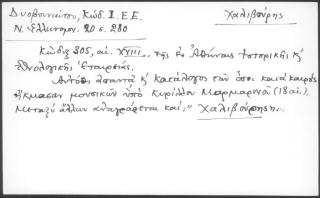 Δυοβουνιώτου, Κώδ. Ι. Ε. Ε.
Χαλιβούρης
Ν. Ελληνομν. 20 σ. 280
Κώδιξ 305, αἰ. XVIII. τῆς ἐν Ἀθήναις Ἱστορικῆς κ'
Ἐθνολογικῆς Ἑταιρείας.
κ' κατάλογος τῶν ὅσοι κατὰ καιροὺς
ἤκμασαν μουσικῶν ὑπὸ Κυρίλλου Μαρμαρηνοῦ (18 αἰ.).
Μεταξὺ ἄλλων ἀναγράφεται καί: "Χαλιβούρης".